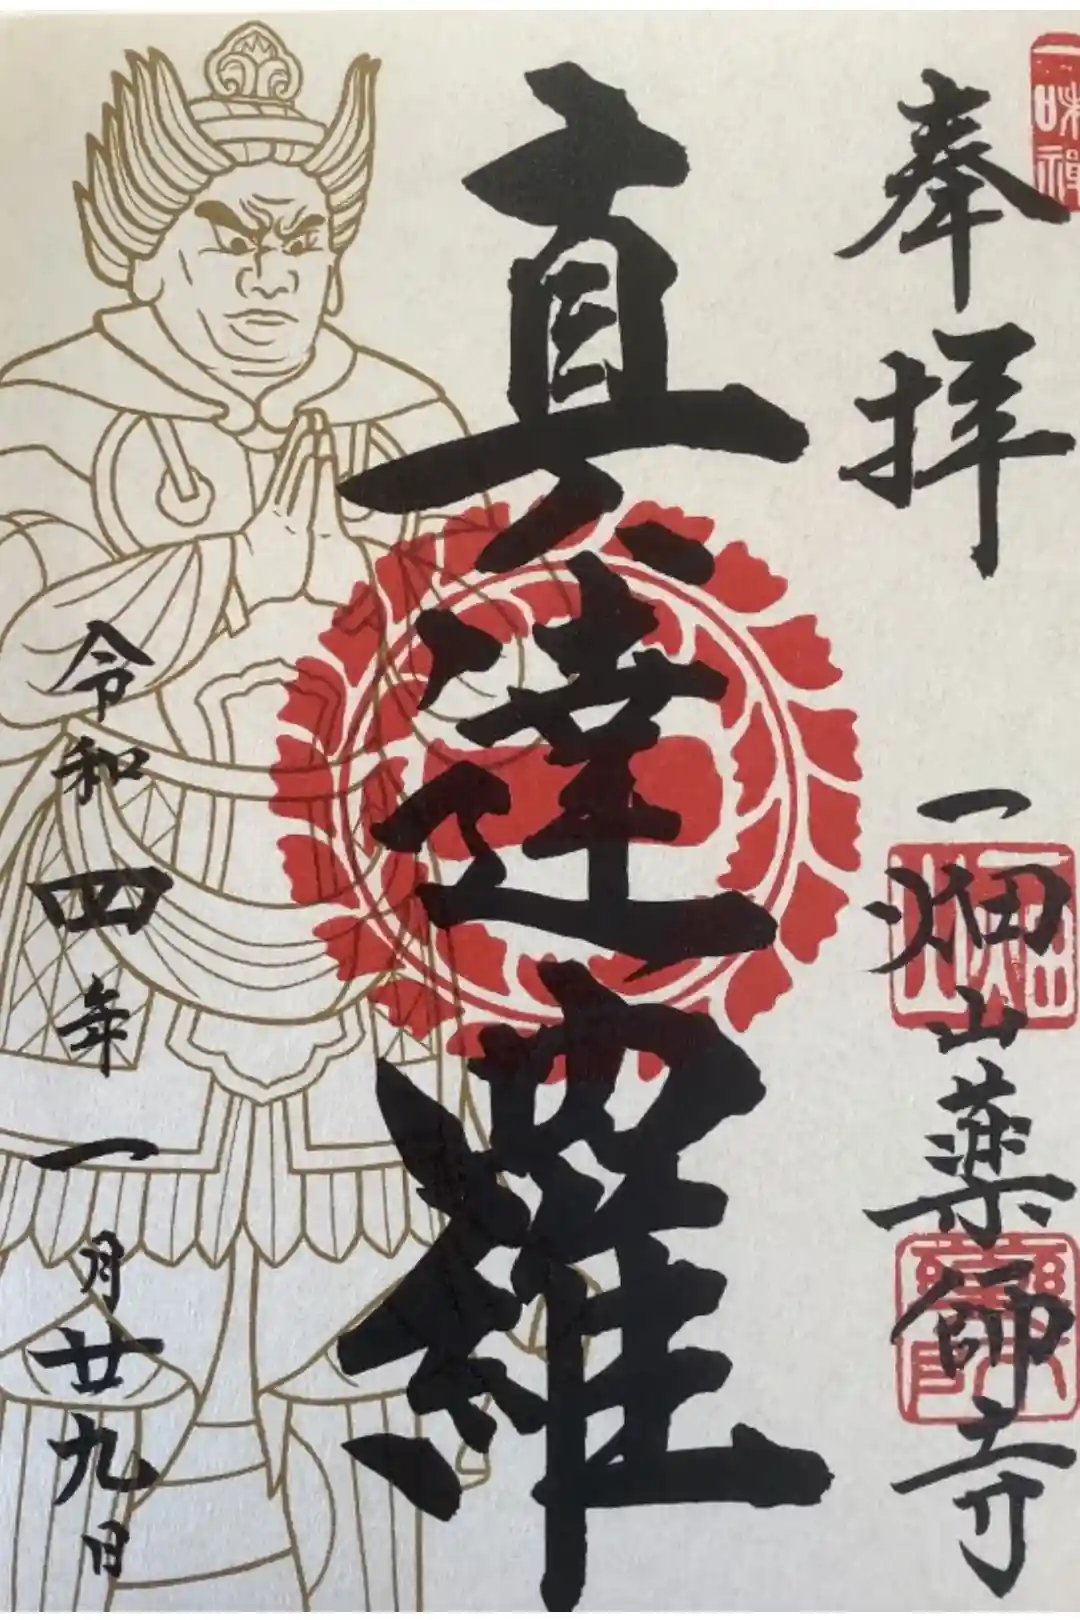 奉拝
一畑山薬師寺
真達羅
令和四年一月廿九日
一味禅